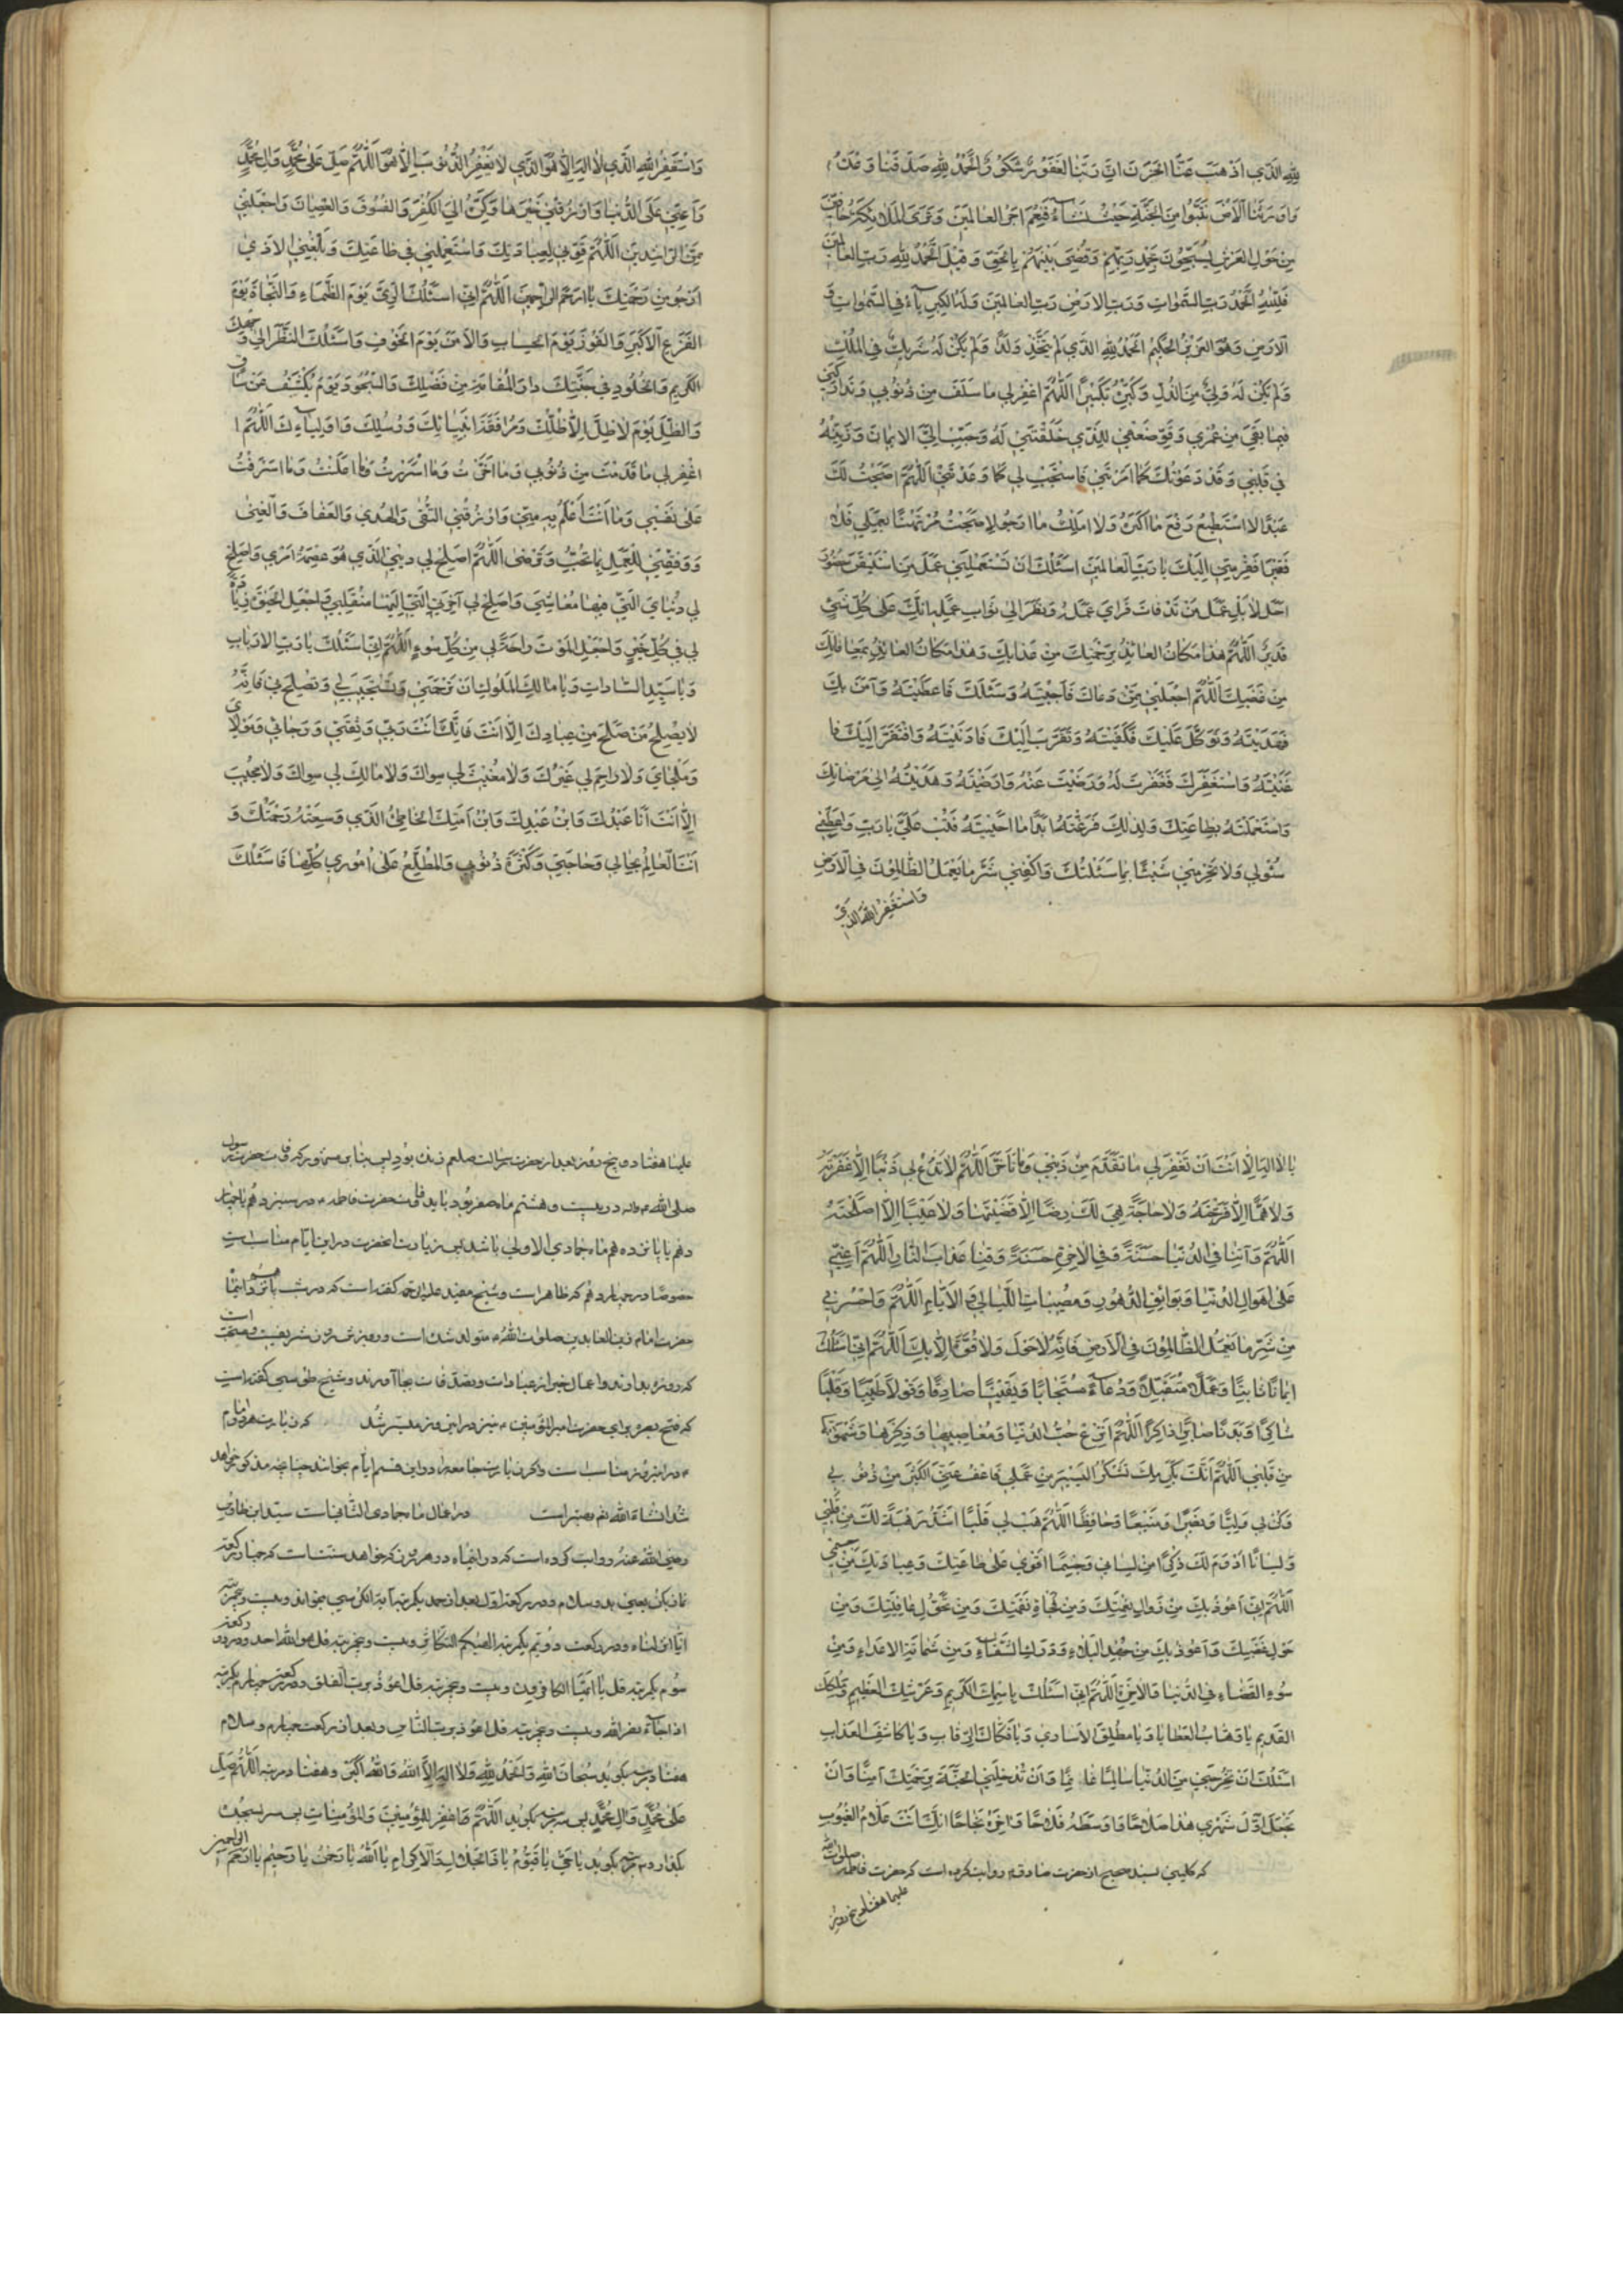 لِلّهِ الَّذي اَذْهَبَ عَنَّا الْحَزَنَ اِنَّ رَبَّنا لَغَفُورٌ شَكُورٌ وَالْحَمْدُ لِلّهِ صَدَقَنا وَعْدَهُ
وَاَوْرَثَنَا الْاَرْضَ نَتَبَوَّأُ مِنَ الْجَنَّةِ حَيْثُ نَشاءُ فَنِعْمَ اَجْرُ العامِلينَ وَتَرَى الْمَلائِكَةَ حافّينَ
مِنْ حَوْلِ الْعَرْشِ يُسَبِّحُونَ بِحَمْدِ رَبِّهِمْ وَقُضِيَ بَيْنَهُمْ بِالْحَقِّ وَقيلَ الْحَمْدُ لِلّهِ رَبِّ الْعالَمينَ
فَلِلّهِ الْحَمْدُ رَبِّ السَّمواتِ وَرَبِّ الارْضِ رَبِّ العالَمينَ وَلَهُ الْكِبْرِياءُ فِي السَّمواتِ وَ
الْاَرْضِ وَهُوَ الْعَزيزُ الْحَكيمُ الْحَمْدُ لِلّهِ الَّذي لَمْ يَتَّخِذْ وَلَدًا وَلَمْ يَكُنْ لَهُ شَريكٌ فِي الْمُلْكِ
وَلَمْ يَكُنْ لَهُ وَلِيٌّ مِنَ الذُّلِّ وَكَبِّرْهُ تَكْبيرًا اَللّهُمَّ اغْفِرْ لي ما سَلَفَ مِنْ ذُنُوبي وَتَدارَكْني
فيما بَقِيَ مِنْ عُمْري وَقَوِّ ضَعْفي لِلَّذي خَلَقْتَني لَهُ وَحَبِّبْ اِلَيَّ الايمانَ وَزَيِّنْهُ
في قَلْبي وَقَدْ دَعَوْتُكَ كَما اَمَرْتَني فَاسْتَجِبْ لي كَما وَعَدْتَني اَللّهُمَّ اَصْبَحْتُ لَكَ
عَبْدًا لا اَسْتَطيعُ دَفْعَ ما اَكْرَهُ وَلا اَمْلِكُ ما اَرْجُو وَاَصْبَحْتُ مُرْتَهَنًا بِعَمَلي فَلا
فَقيرَ اَفْقَرُ مِنّي اِلَيْكَ يا رَبَّ الْعالَمينَ اَسْئَلُكَ اَنْ تَسْتَعْمِلَني عَمَلَ مَنِ اسْتَيْقَنَ حُضُورَ
اَجَلِهِ لا بَلْ عَمَلَ مَنْ قَدْ ماتَ فَرَاى عَمَلَهُ وَنَظَرَ اِلى ثَوابِ عَمَلِهِ اِنَّكَ عَلى كُلِّ شَيْءٍ
قَديرٌ اَللّهُمَّ هذا مَكانُ العائِذِ بِرَحْمَتِكَ مِنْ عَذابِكَ وَهذا مَكانُ العائِذِ بِمُعافاتِكَ
مِنْ غَضَبِكَ اَللّهُمَّ اجْعَلْني مِمَّنْ دَعاكَ فَاَجَبْتَهُ وَسَئَلَكَ فَاَعْطَيْتَهُ وَآمَنَ بِكَ
فَهَدَيْتَهُ وَتَوَكَّلَ عَلَيْكَ فَكَفَيْتَهُ وَتَقَرَّبَ اِلَيْكَ فَاَدْنَيْتَهُ وَافْتَقَرَ اِلَيْكَ فَا
غْنَيْتَهُ وَاسْتَغْفَرَكَ فَغَفَرْتَ لَهُ وَرَضيتَ عَنْهُ وَاَرْضَيْتَهُ وَهَدَيْتَهُ اِلى مَرْضاتِكَ
وَاسْتَعْمَلْتَهُ بِطاعَتِكَ وَلِذلِكَ فَرَّغْتَهُ اَبَدًا ما اَحْيَيْتَهُ فَتُبْ عَلَيَّ يا رَبِّ وَاَعْطِني
سُؤْلي وَلا تَحْرِمْني شَيْئًا مِمّا سَئَلْتُكَ وَاكْفِني شَرَّ ما يَعْمَلُ الظّالِمُونَ فِي الْاَرْضِ
وَاَسْتَغْفِرُ اللهَ الَّذي
وَاَسْتَغْفِرُ اللهَ الَّذي لا اِلهَ اِلّا هُوَ الَّذي لا يَغْفِرُ الذُّنُوبَ اِلّا هُوَ اَللّهُمَّ صَلِّ عَلى مُحَمَّدٍ وَآلِ مُحَمَّدٍ
وَاَعِنّي عَلَى الدُّنْيا وَارْزُقْني خَيْرَها وَكَرِّهْ اِلَيَّ الْكُفْرَ وَالْفُسُوقَ وَالْعِصْيانَ وَاجْعَلْني
مِنَ الرّاشِدينَ اَللّهُمَّ قَوِّني لِعِبادَتِكَ وَاسْتَعْمِلْني في طاعَتِكَ وَبَلِّغْنِي الَّذي
اَرْجُو مِنْ رَحْمَتِكَ يا اَرْحَمَ الرّاحِمينَ اَللّهُمَّ اِنّي اَسْئَلُكَ الرِّيَّ يَوْمَ الظَّماءِ وَالنَّجاةَ يَوْمَ
الْفَزَعِ الْاَكْبَرِ وَالْفَوْزَ يَوْمَ الْحِسابِ وَالْاَمْنَ يَوْمَ الْخَوْفِ وَاَسْئَلُكَ النَّظَرَ اِلى وَجْهِكَ
الْكَريمِ وَالْخُلُودَ في جَنَّتِكَ دارِ الْمُقامَةِ مِنْ فَضْلِكَ وَالسُّجُودَ يَوْمَ يُكْشَفُ عَنْ ساقٍ
وَالظِّلَّ يَوْمَ لا ظِلَّ اِلّا ظِلُّكَ وَمُرافَقَةَ اَنْبِيائِكَ وَرُسُلِكَ وَاَوْلِياءِكَ اَللّهُمَّ ا
غْفِرْ لي ما قَدَّمْتُ مِنْ ذُنُوبي وَما اَخَّرْتُ وَما اَسْرَرْتُ وَما اَعْلَنْتُ وَما اَسْرَفْتُ
عَلى نَفْسي وَما اَنْتَ اَعْلَمُ بِهِ مِنّي وَارْزُقْنِي التُّقى وَالْهُدى وَالْعَفافَ وَالْغِنى
وَوَفِّقْني لِلْعَمَلِ بِما تُحِبُّ وَتَرْضى اَللّهُمَّ اَصْلِحْ لي دينِيَ الَّذي هُوَ عِصْمَةُ اَمْري وَاَصْلِحْ
لي دُنْيايَ الَّتي فيها مَعاشي وَاَصْلِحْ لي آخِرَتِيَ الَّتي اِلَيْها مُنْقَلَبي وَاجْعَلِ الْحَيوةَ زِيادَةً
لي في كُلِّ خَيْرٍ وَاجْعَلِ الْمَوْتَ راحَةً لي مِنْ كُلِّ سُوءٍ اَللّهُمَّ اِنّي اَسْئَلُكَ يا رَبَّ الْاَرْبابِ
وَيا سَيِّدَ السّاداتِ وَيا مالِكَ الْمُلُوكِ اَنْ تَرْحَمَني وَتَسْتَجيبَ لي وَتُصْلِحَني فَاِنَّهُ
لا يُصْلِحُ مَنْ صَلَحَ مِنْ عِبادِكَ اِلّا اَنْتَ فَاِنَّكَ اَنْتَ رَبّي وَثِقَتي وَرَجائي وَمَوْلايَ
وَمَلْجَايَ وَلا راحِمَ لي غَيْرُكَ وَلا مُغيثَ لي سِواكَ وَلا مالِكَ لي سِواكَ وَلا مُجيبَ
اِلّا اَنْتَ اَنَا عَبْدُكَ وَابْنُ عَبْدِكَ وَابْنُ اَمَتِكَ الْخاطِئُ الَّذي وَسِعَتْهُ رَحْمَتُكَ وَ
اَنْتَ الْعالِمُ بِحالي وَحاجَتي وَكَثْرَةِ ذُنُوبي وَالْمُطَّلِعُ عَلى اُمُوري كُلِّها فَاَسْئَلُكَ
يا لا اِلهَ اِلّا اَنْتَ اَنْ تَغْفِرَ لي ما تَقَدَّمَ مِنْ ذَنْبي وَما تَاَخَّرَ اَللّهُمَّ لا تَدَعْ لي ذَنْبًا اِلّا غَفَرْتَهُ
وَلا هَمًّا اِلّا فَرَّجْتَهُ وَلا حاجَةً هِيَ لَكَ رِضًا اِلّا قَضَيْتَها وَلا عَيْبًا اِلّا اَصْلَحْتَهُ
اَللّهُمَّ وَآتِنا فِي الدُّنْيا حَسَنَةً وَفِي الْاخِرَةِ حَسَنَةً وَقِنا عَذابَ النّارِ اَللّهُمَّ اَعِنّي
عَلى اَهْوالِ الدُّنْيا وَبَوائِقِ الدُّهُورِ وَمُصيباتِ اللَّيالي وَالْاَيّامِ اَللّهُمَّ وَاحْرُسْني
مِنْ شَرِّ ما يَعْمَلُ الظّالِمُونَ فِي الْاَرْضِ فَاِنَّهُ لا حَوْلَ وَلا قُوَّةَ اِلّا بِكَ اَللّهُمَّ اِنّي اَسْئَلُكَ
ايمانًا ثابِتًا وَعَمَلًا مُتَقَبَّلًا وَدُعاءً مُسْتَجابًا وَيَقينًا صادِقًا وَقَوْلًا طَيِّبًا وَقَلْبًا
شاكِرًا وَبَدَنًا صابِرًا وَلِسانًا ذاكِرًا اَللّهُمَّ انْزِعْ حُبَّ الدُّنْيا وَمَعاصيها وَذِكْرَها وَشَهْوَتَها
مِنْ قَلْبي اَللّهُمَّ اِنَّكَ بِكَرَمِكَ تَشْكُرُ الْيَسيرَ مِنْ عَمَلي فَاعْفُ عَنِّي الْكَثيرَ مِنْ ذُنُوبي
وَكُنْ لي وَلِيًّا وَنَصيرًا وَمُعينًا وَحافِظًا اَللّهُمَّ هَبْ لي قَلْبًا اَشَدَّ رَهْبَةً لَكَ مِنْ قَلْبي
وَلِسانًا اَدْوَمَ لَكَ ذِكْرًا مِنْ لِساني وَجِسْمًا اَقْوى عَلى طاعَتِكَ وَعِبادَتِكَ مِنْ جِسْمي
اَللّهُمَّ اِنّي اَعُوذُ بِكَ مِنْ زَوالِ نِعْمَتِكَ وَمِنْ فُجاءَةِ نَقِمَتِكَ وَمِنْ تَحَوُّلِ عافِيَتِكَ وَمِنْ
هَوْلِ غَضَبِكَ وَاَعُوذُ بِكَ مِنْ جَهْدِ الْبَلاءِ وَدَرَكِ الشَّقاءِ وَمِنْ شَماتَةِ الاَعْداءِ وَمِنْ
سُوءِ القَضاءِ فِي الدُّنْيا وَالآخِرَةِ اَللّهُمَّ اِنّي اَسْئَلُكَ بِاسْمِكَ الْكَريمِ وَعَرْشِكَ العَظيمِ وَمُلْكِكَ
القَديمِ يا وَهّابَ العَطايا وَيا مُطْلِقَ الاُسارى وَيا فَكّاكَ الرِّقابِ وَيا كاشِفَ العَذابِ
اَسْئَلُكَ اَنْ تُخْرِجَني مِنَ الدُّنْيا سالِمًا غانِمًا وَاَنْ تُدْخِلَنِي الْجَنَّةَ بِرَحْمَتِكَ آمِنًا وَاَنْ
تَجْعَلَ اَوَّلَ شَهْري هذا صَلاحًا وَاَوْسَطَهُ فَلاحًا وَآخِرَهُ نَجاحًا اِنَّكَ اَنْتَ عَلّامُ الْغُيُوبِ
که کلینی بسند صحیح از حضرت صادق روایت کرده است که حضرت فاطمه صلوات الله
علیها هفتاد و پنج روز
علیها هفتاد و پنج روز بعد از حضرت رسالت صلعم زنده بود پس بنابر مشهور که وفات حضرت رسول
صلی الله در بیست و هشتم ماه صفر بود باید وفات حضرت فاطمه در سیزدهم یا چهار
دهم یا پانزدهم ماه جمادی الاولی باشد پس زیارت آنحضرت در این ایام مناسبست
خصوصا در چهاردهم که ظاهر است و شیخ مفید علیه الرحمه گفته است که در شب
حضرت امام زین العابدین صلوات الله متولد شده است و روزش روز شریفیست و مستحبّ است
که روزه بدارند و اعمال خیر از عبادات و تصدقات بجا آورند و شیخ طوسی گفته است
که فتح بصره برای حضرت امیر المؤمنین نیز در این روز میسر شد که زیارت هر دو امام
در این روز مناسب است و اگر زیارت جامعه را در این قسم ایام بخوانند چنانچه مذکور خواهد
شد انشاء الله بهتر است در اعمال ماه جمادی الثانیه است سید ابن طاوس
رضی الله عنه روایت کرده است که در این ماه در هر روز که خواهد سنّت است که چهار رکعت
نماز بکن یعنی بدو سلام و در رکعت اول بعد از حمد یکمرتبه آیة الکرسی بخواند و بیست و پنج مرتبه
انّا انزلناه و در رکعت دویم یکمرتبه الهیکم التّکاثر و بیست و پنجمرتبه قل هو الله احد و در رکعت
سوم یکمرتبه قل یا ایّها الکافرون و بیست و پنجمرتبه قل اعوذ بربّ الفلق و در رکعت چهارم یکمرتبه
اذا جاءَ نصر الله و بیست و پنجمرتبه قل اعوذ بربّ النّاس و بعد از رکعت چهارم و سلام
هفتاد مرتبه بگوید سُبْحانَ اللهِ وَالْحَمْدُ لِلّهِ وَلا اِلهَ اِلَّا اللهُ وَاللهُ اَكْبَرُ و هفتاد مرتبه اَللّهُمَّ صَلِّ
عَلى مُحَمَّدٍ وَآلِ مُحَمَّدٍ پس سه مرتبه بگوید اَللّهُمَّ اغْفِرْ لِلْمُؤْمِنينَ وَالْمُؤْمِناتِ پس سر بسجده
بگذارد و سه مرتبه بگوید يا حَيُّ يا قَيُّومُ يا ذَا الْجَلالِ وَالْاِكْرامِ يا اَللهُ يا رَحْمنُ يا رَحيمُ يا اَرْحَمَ الرّاحِمينَ